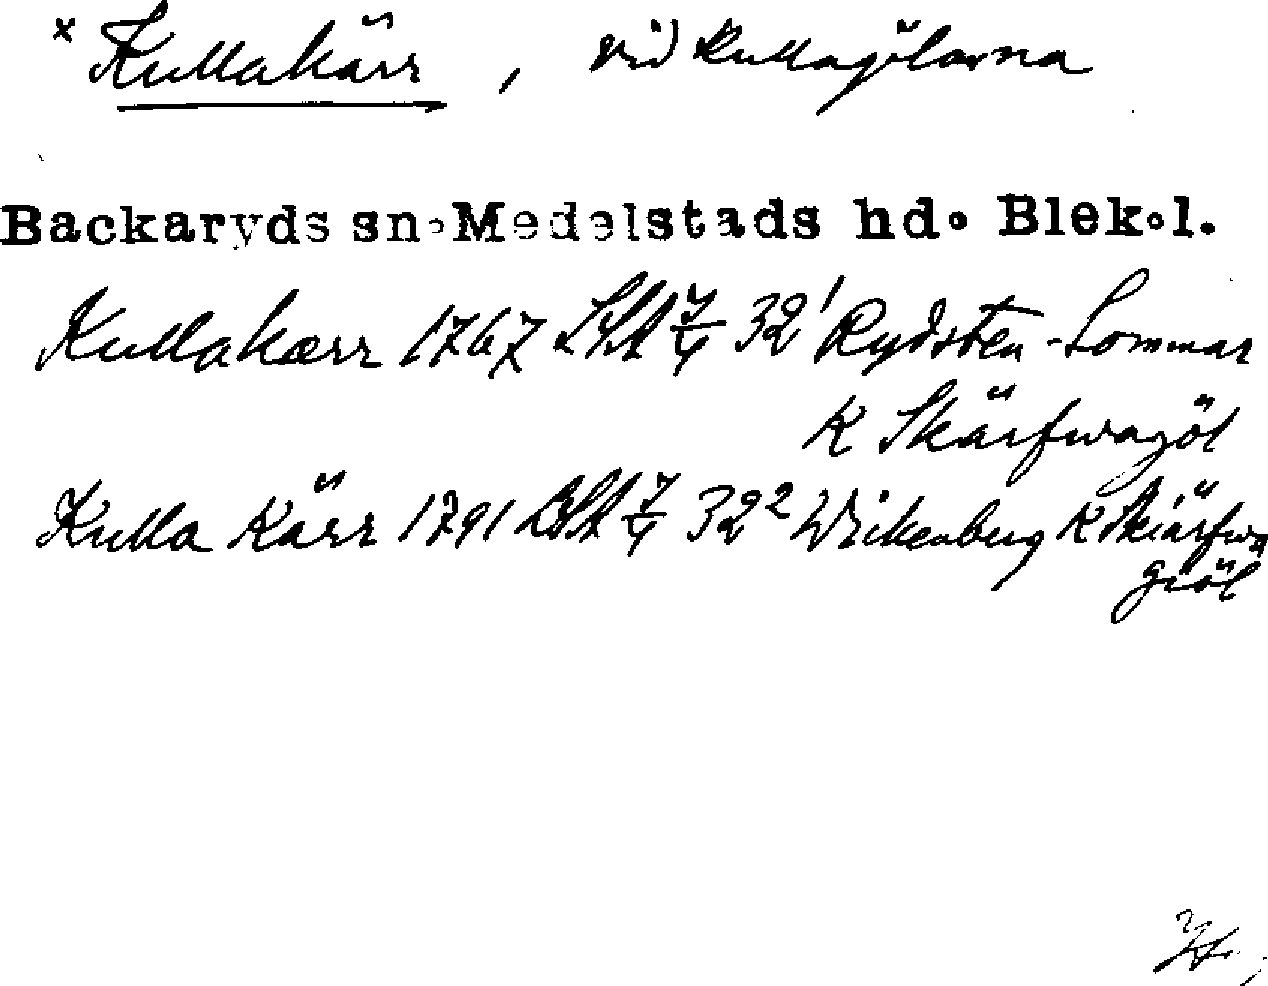 × Kullakärr, vid Kullagölarna
Backaryds sn. Medelstads hd. Blek.l.
Kullakærr 1767 LSA 32¹ Rydstén-Sommar
K Skärfwagöl
Kulla Kärr 1791 LSA 32² Wickenberg K Skiärfwa
giöl